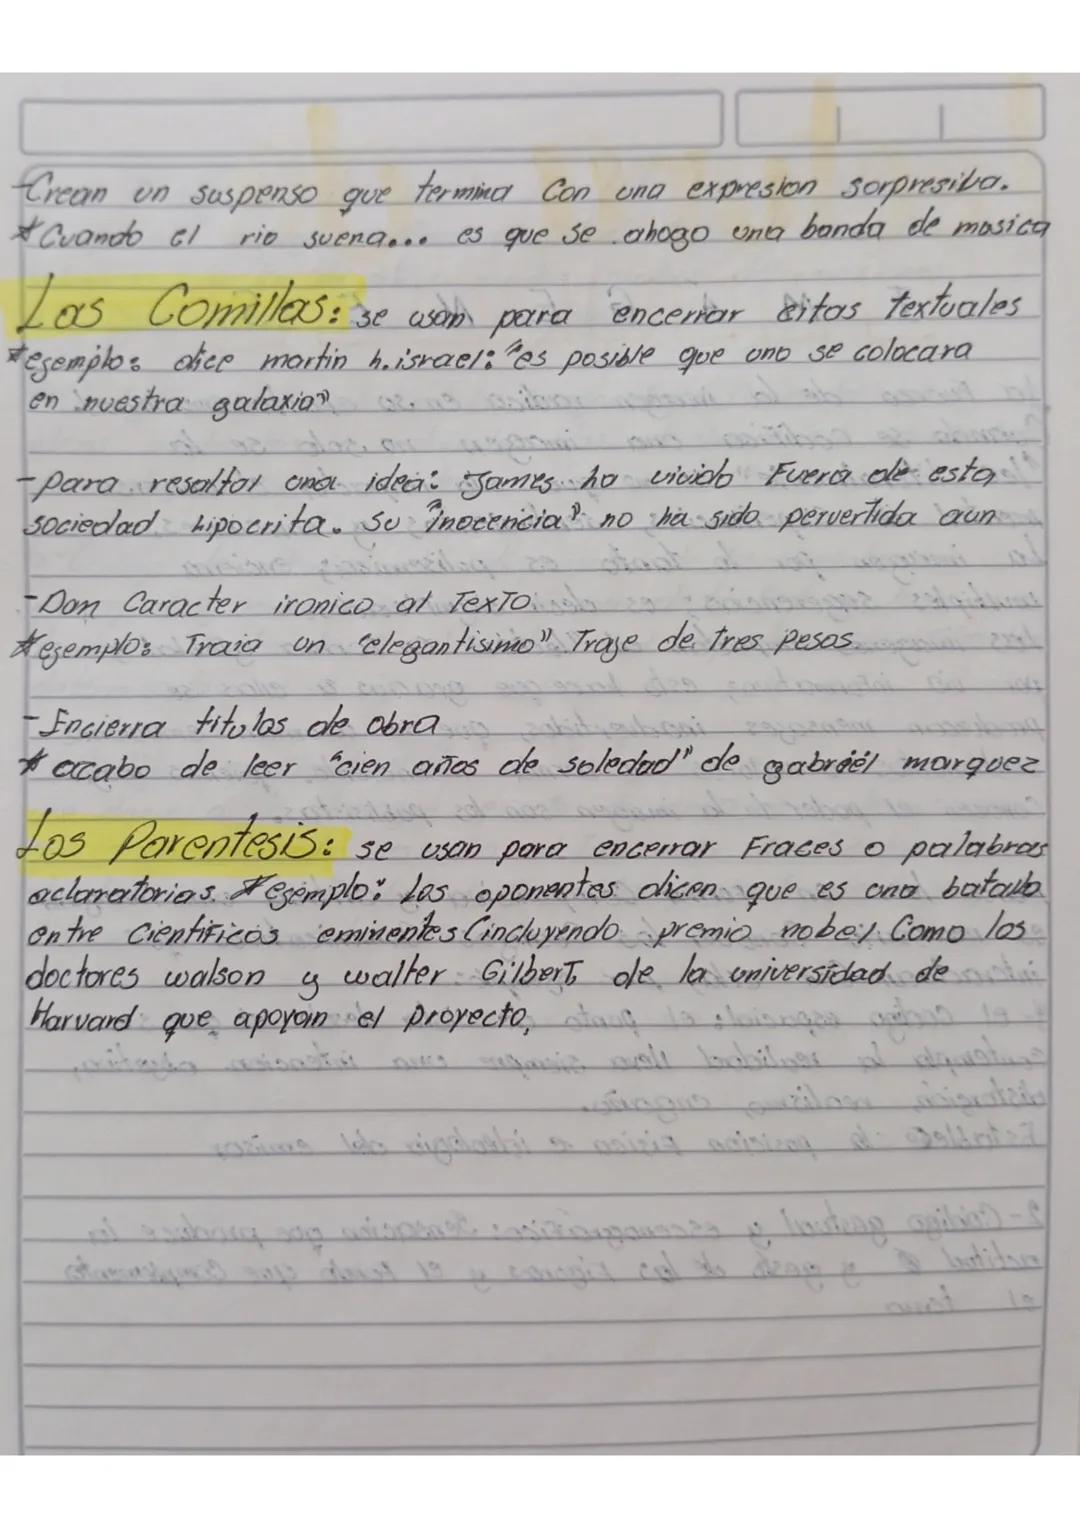 -Crean un suspenso que termina con una expresion sorpresiva.
*Cuando el rio suena... es que se ahogo una banda de mosica
Las Comillas: se usan para encerrar citas textuales
*ejemplo: dice martin h. israel: "es posible que uno se colocara
en nuestra galaxia"
-para resaltar una idea: James ha vivido Fuera de esta
sociedad hipocrita. Su "inocencia" no ha sido pervertida aun
-Dan Caracter ironico al Texto
*ejemplo: Traia un "elegantisimo" Traje de Tres Pesos.
-Encierra titulos de obra
*acabo de leer "cien años de soledad" de gabriél marquez
Los Parentesis: se usan para encerrar Fraces o palabras
aclaratorias. *ejemplo: Los oponentes dicen que es una batalla
entre Cientificos eminentes (incluyendo premio nobel Como los
doctores walson y walter Gilbert, de la universidad de
Harvard que apoyan el proyecto,